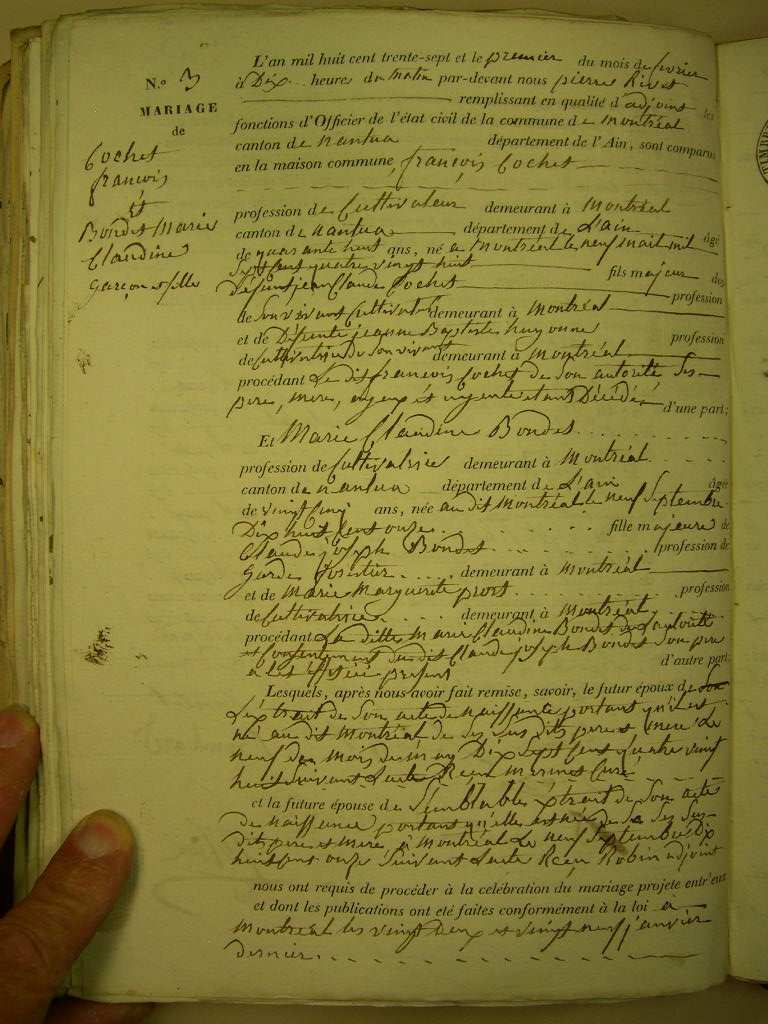 N.º 3
MARIAGE
de
Cochet
françois
et
Bondet Marie
Claudine
Garçon et fille
L'an mil huit cent trente-sept et le premier du mois de fevrier
à Dix heures du matin par-devant nous pierre Rivet
remplissant en qualité d adjoint les
fonctions d'Officier de l'état civil de la commune de Montréal
canton de nantua département de l'Ain, sont comparus
en la maison commune, françois Cochet
profession de Cultivateur demeurant à Montréal
canton de nantua département de L'ain âgé
de quarante huit ans, né à Montréal le neuf mai mil
sept cent quatre vingt huit fils majeur des
Défunt jean Claude Cochet profession
de Son vivant Cultivateur demeurant à Montréal
et de Défunte jeanne Baptiste huyonne profession
de Cultivatrice de Son vivant demeurant à Montréal
procédant Le dit françois Cochet de Son autorité Ses
pere, mere, ayeux et ayeules étant Décédés d'une part;
Et Marie Claudine Bondet
profession de Cultivatrice demeurant à Montréal
canton de nantua département de L'ain âgée
de vingt cinq ans, née au dit Montréal le neuf Septembre
Dix huit Cent onze fille majeure de
Claude joseph Bondet profession de
Garde forestier demeurant à Montréal
et de Marie Marguerite prost profession
de Cultivatrice demeurant à Montréal
procédant La ditte Marie Claudine Bondet de L'autorité
et Consentement du dit Claude joseph Bondet Son pere
a Ces présent d'autre part
Lesquels, après nous avoir fait remise, savoir, le futur époux de Son
L'extrait de Son acte de naissance portant qu'il est
né au dit Montréal de Ses Sus dits pere et mere Le
neuf du mois de may Dix sept Cent quatre vingt
huit Suivant L'acte Reçu Curé
et la future épouse de Semblable extrait de Son acte
de naissance portant qu'elle est née de Ses Sus
dits pere et mere à Montréal Le neuf Septembre Dix
huit cent onze Suivant L'acte Reçu Robin adjoint
nous ont requis de procéder à la celébration du mariage projete entr'eux
et dont les publications ont eté faites conformément à la loi a
Montréal les vingt Deux et vingt neuf janvier
dernier
TIMBRE